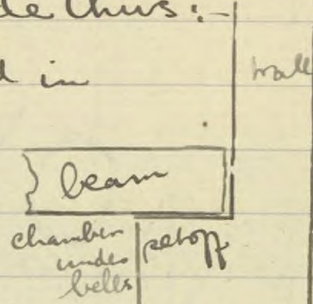 thus:-
d in
wall
beam
chamber
under
bells
setoff